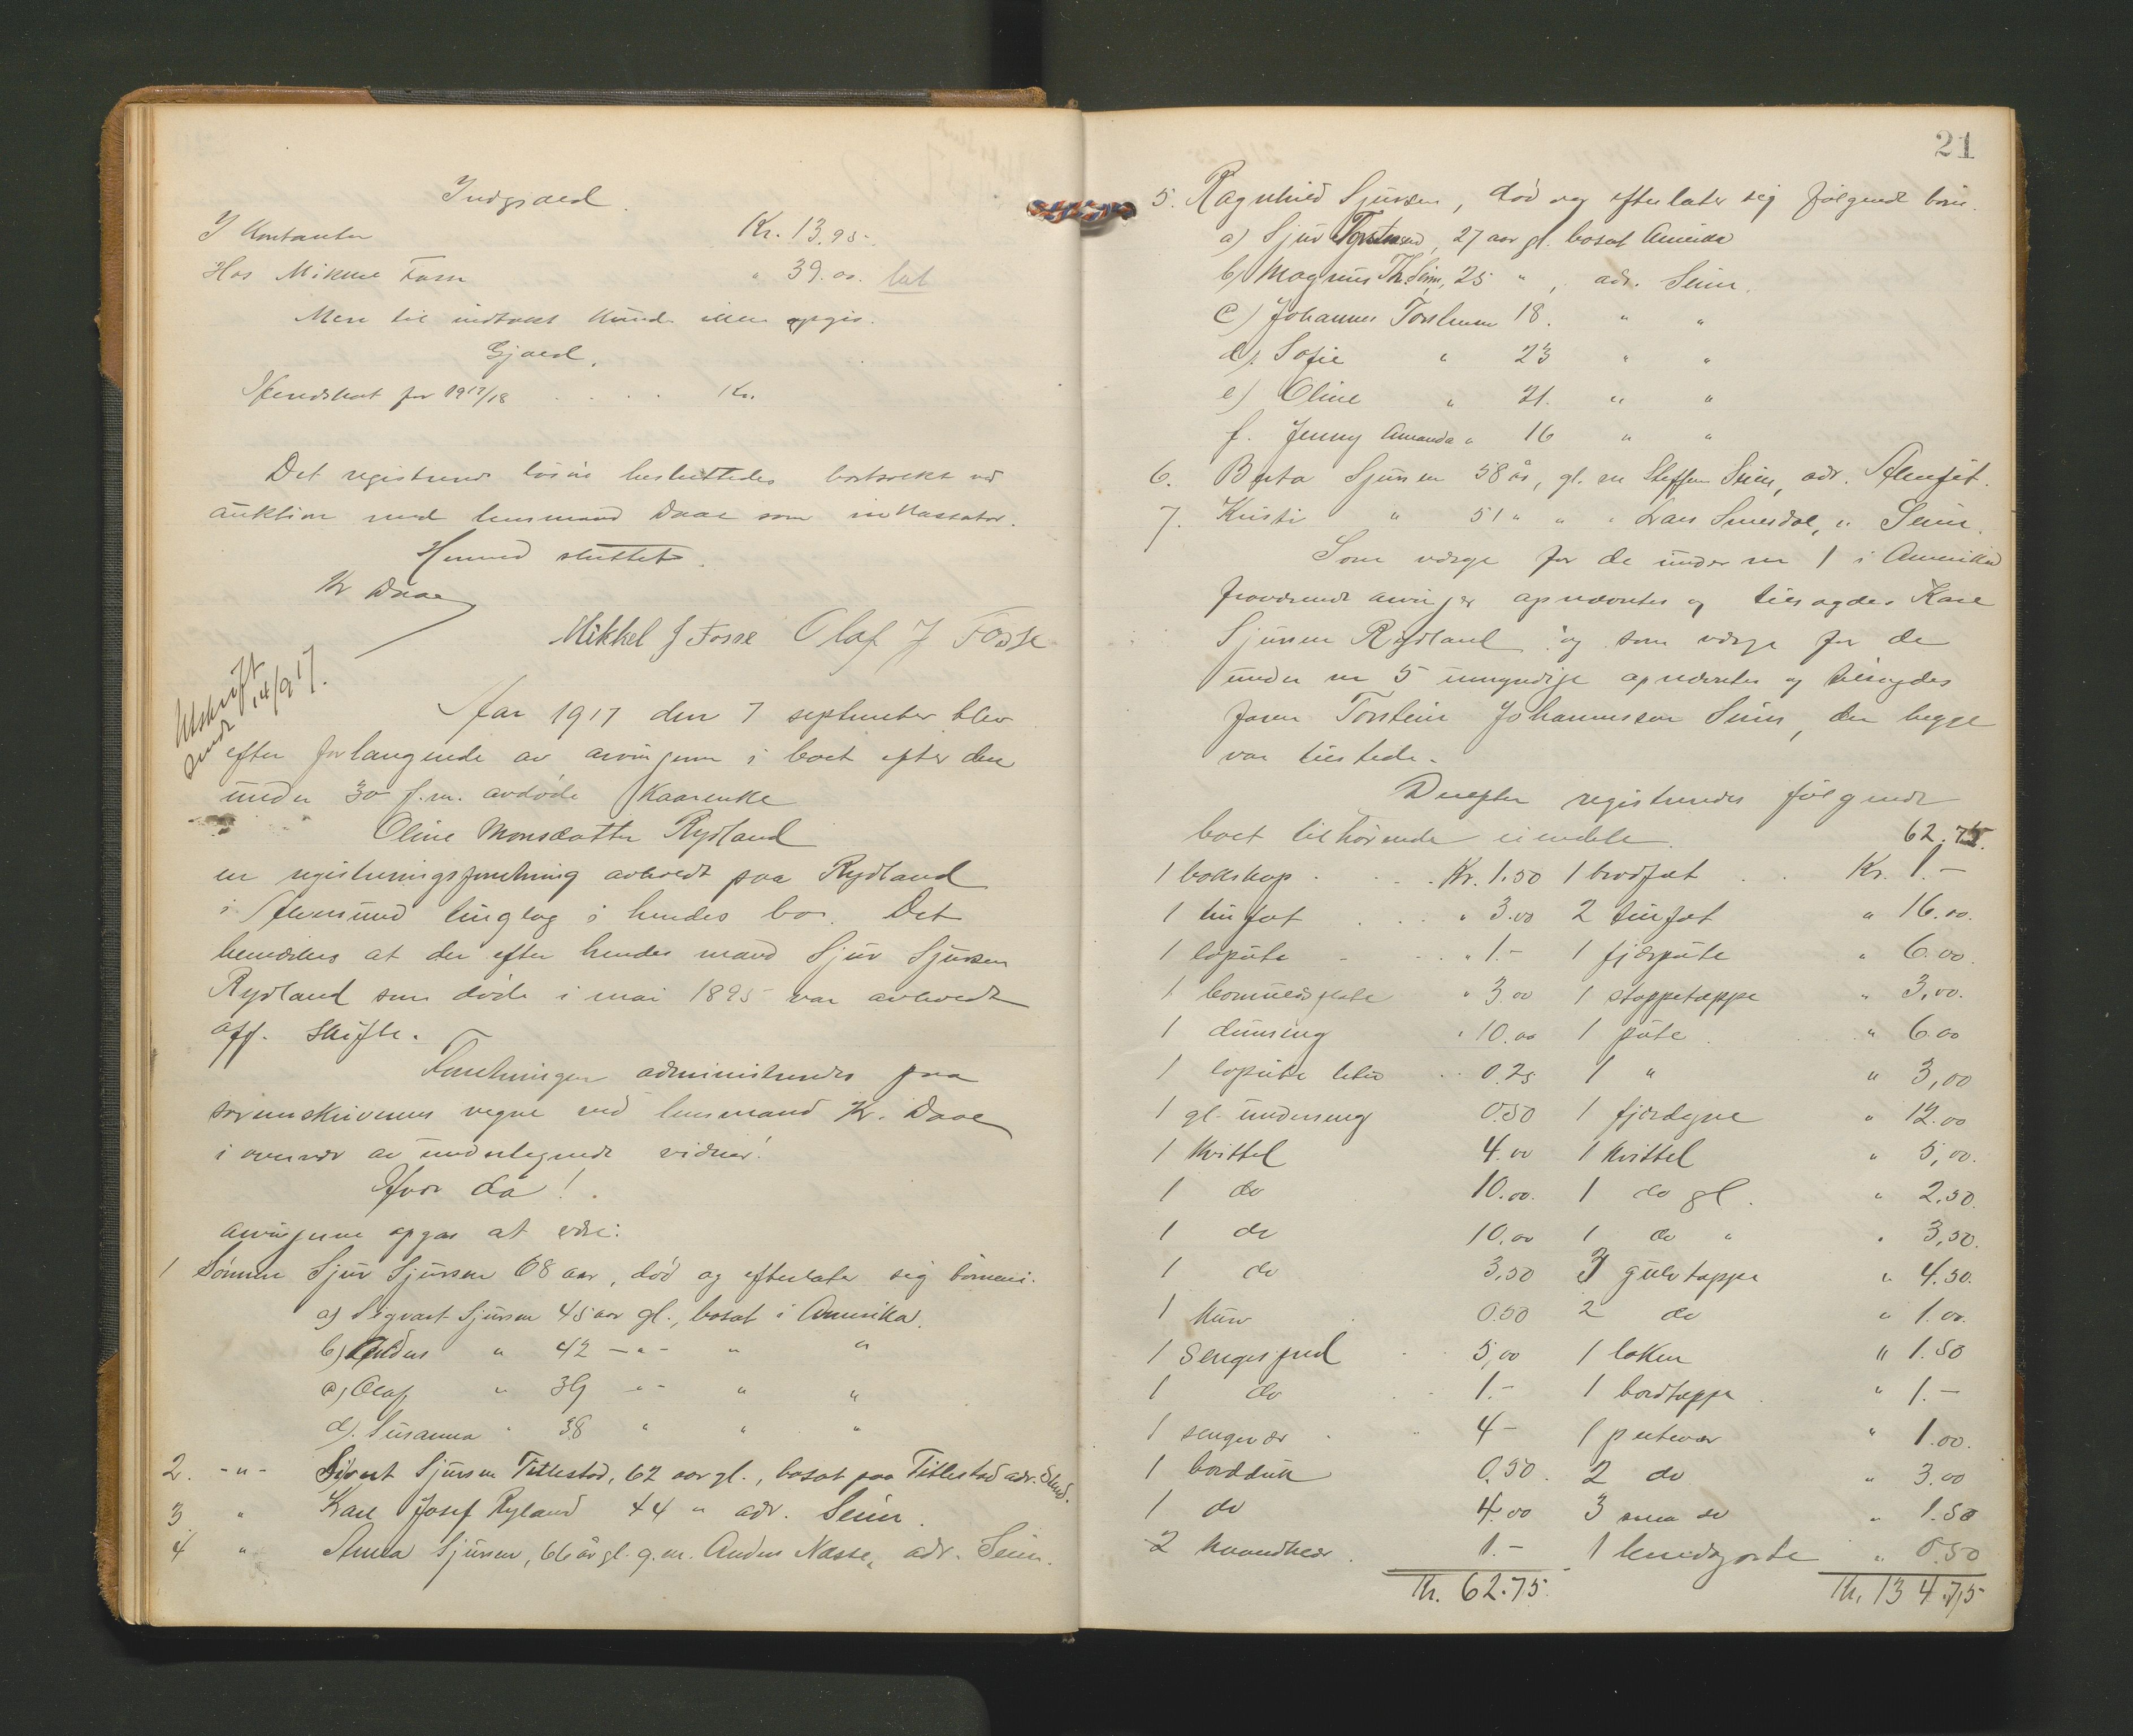 Indgjæld.
I Kontanter Kr. 13.95
Hos Mikkel Fosse " 39.00. tat
Mere til indtækt kunde ikke opgis.
Gjæld.
Herredskat for 1917/18 . . . . Kr.
Det registrerede løsøre besluttedes bortsolgt ved
auktion med lensmand Daae som inkassator.
Hermed sluttet.
Kr Daae
Mikkel J Fosse Olaf J Fosse
Utskrift
sendt 14/9 17.
Aar 1917 den 7 september blev
efter forlangende av arvingerne i boet efter den
under 30 f.m. avdøde Kaarenke
Oline Monsdatter Rydland
en registreringsforretning avholdt paa Rydland
i tinglag i hendes bo. Det
bemerkes at der efter hendes mand Sjur Sjursen
Rydland som døde i mai 1895 var avholdt
off. skifte.
Forretningen administreredes paa
sorenskriverens vegne ved lensmand Kr. Daae
i overvær av undertegnede vidner!
Hvor da!
arvingerne opgas at være:
1 Sønnen Sjur Sjursen 68 aar, død og efterlater sig børnene:
a) Sigvart Sjursen 45 aar gl., bosat i Amerika.
b) Anders " 42 -"- " "
c) Olaf " 39 -"- " "
d). Susanna " 38 " " "
2. -"- Sivert Sjursen Titlestad, 62 aar gl., bosat paa Titlestad adr.
3 " Karl Josef Ryland 44 " adr. Seim.
4 " Anna Sjursen, 66 år gl. g.m. Anders Næsse, adr. Seim.
21
5. Ragnhild Sjursen, død og efterlater sig følgende børn.
a) Sjur Torsteinsen, 27 aar gl. bosat Amerika
b) Magnus Th. Seim, 25 " , adr. Seim.
c) Johannes Torsteinsen 18. " "
d). Sofie " 23 " "
e) Oline " 21. " "
f. Jenny Amanda " 16 " "
6. Berta Sjursen 58 år, gl. m Steffen Seim, adr.
7. Kristi " 51 " " " Lars Smesdal, " Seim.
Som verge for de under nr 1 i Amerika
fraværende arvinger opnævntes og tilsagdes Karl
Sjursen Rydland og som verge for de
under nr 5 umyndige opnævntes og tilsagdes
faren Torstein Johannessen Seim, der begge
var tilstede.
Derefter registreredes følgende
boet tilhørende eiendele. 62.75.
1 bokskap . . . Kr. 1.50 1 brødfat . . Kr. 1.-
1 tinfat . . . " 3.00 2 tinfat " 16.00.
1 loputa - . . " 1.- 1 fjærpute " 6.00.
1 bomuldsplate " 3.00 1 stoppetæppe " 3,00.
1 dunseng " 10.00 1 pute . " 6.00
1 loputa liten . . 0.25 1 " " 3,00
1 gl. underseng 0.50 1 fjærdyne " 12.00
1 Kvittel 4.00 1 Kvittel " 5,00.
1 do 10.00. 1 do gl. " 2.50
1 do 10,00 1 do " " 3,50.
1 do 3,50 3 gulvtæppe " 4.50.
1 Kurv 0.50 2 do " 1.00.
1 Sengespred . . 5,00 1 laken " 1.50
1 do . . 1.- 1 bordtæppe . " 1.-
1 sengevær . . 4- 1 putevar " 1.00.
1 bordduk 0.50. 2 do " 3.00
1 do 4.00 3 smaa do " 1.50
2 haandklær . 1.- 1 " 0.50
Kr. 62.75. Kr. 134.75